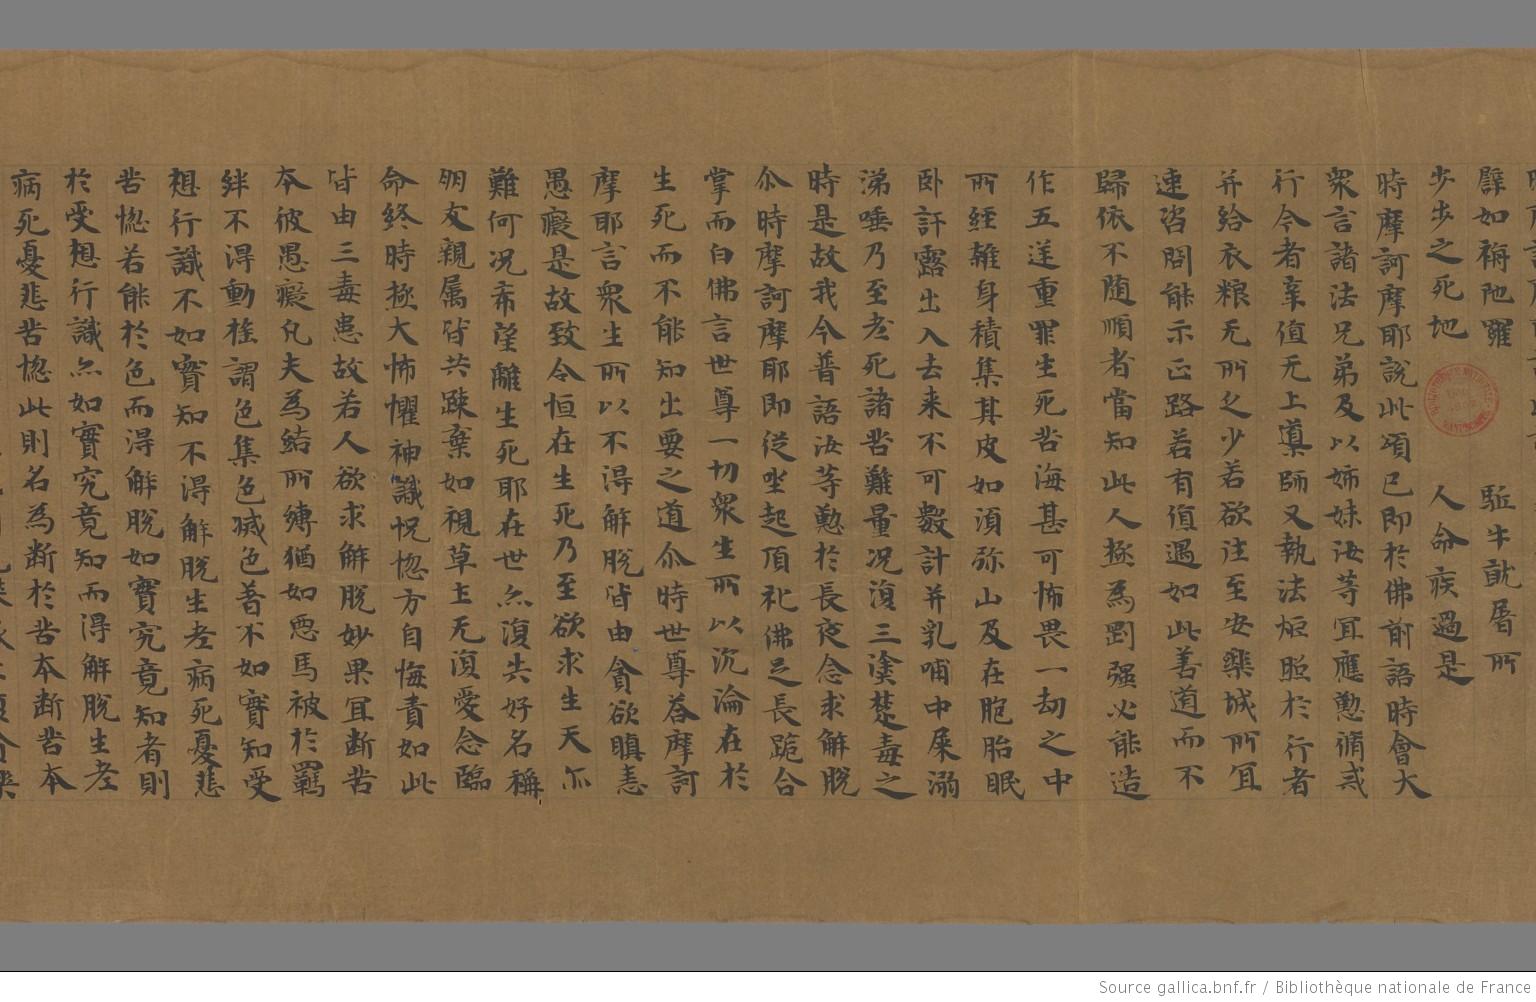 譬如栴陀羅 駈牛就屠所
步步之死地 人命疾過是
時摩訶摩耶說此頌已即於佛前語時會大
衆言諸法兄弟及以姉妹汝等冝應懃脩戒
行今者幸值无上導師又執法炬照於行者
并給衣粮无所乏少若欲往至安樂城所冝
速咨問能示正路若有值遇如此善道而不
歸依不随順者當知此人極為罡强必能造
作五逆重罪生死苦海甚可怖畏一劫之中
所經雜身積集其皮如須弥山及在胞胎眠
卧訐露出入去来不可數計并乳哺中屎溺
涕唾乃至老死諸苦難量况復三塗楚毒之
時是故我今普語汝等懃於長夜念求解脫
尒時摩訶摩耶即從坐起頂礼佛足長跪合
掌而白佛言世尊一切衆生所以沉淪在於
生死而不能知出要之道尒時世尊荅摩訶
摩耶言衆生所以不得解脫皆由貪欲瞋恚
愚癡是故致令恒在生死乃至欲求生天尒
難何况希望離生死耶在世亦復失好名稱
朋友親属皆共踈棄如視草土无復愛念臨
命終時極大怖懼神識怳惚方自悔責如此
皆由三毒患故若人欲求解脫妙果冝断苦
本彼愚癡凡夫為結所縛猶如惡馬被於羈
絆不得動揺謂色集色滅色著不如實知受
想行識不如實知不得解脫生老病死憂悲
苦惚若能於色而得解脫如實究竟知者則
於受想行識亦如實究竟知而得解脫生老
病死憂悲苦惚此則名為断於苦本断苦本